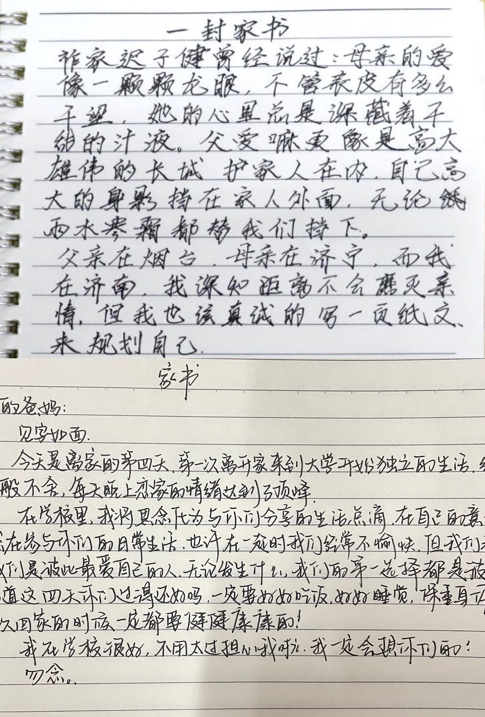 一封家书
作家迟子健曾经说过:母亲的爱
像一颗颗龙眼,不管表皮有多么
干涩,她的心里总是深藏着干
的汁液。父爱嘛更像是高大
雄伟的长城 护家人在内,自己高
大的身影挡在家人外面,无论
雨水寒霜都替我们挡下。
父亲在烟台,母亲在济宁,而我
在济南,我深知距离不会磨灭亲
情,但我也该真诚的写一页纸文、
来规划自己.
家书
的爸妈:
见字如面.
今天是离家的第四天,第一次离开家来到大学开始独立的生活,
般不舍,每天晚上恋家的情绪达到了顶峰.
在学校里,我将思念化为与你们分享的生活点滴,在自己的
在参与你们的日常生活.也许在一起时我们经常不愉快.但我们
们是彼此最爱自己的人.无论发生什么,我们的第一选择都是彼
道这四天你们过得还好吗,一定要好好吃饭,好好睡觉,保重身
次回家的时候一定都要健健康康的!
我在学校很好,不用太过担心我啦.我一定会想你们的!
勿念。